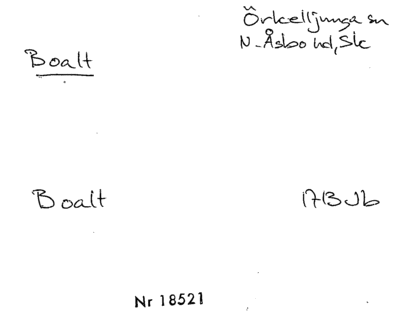 Örkelljunga sn
N. Åsbo hd, Sk
Boalt
Boalt 1713 Jb
Nr 18521